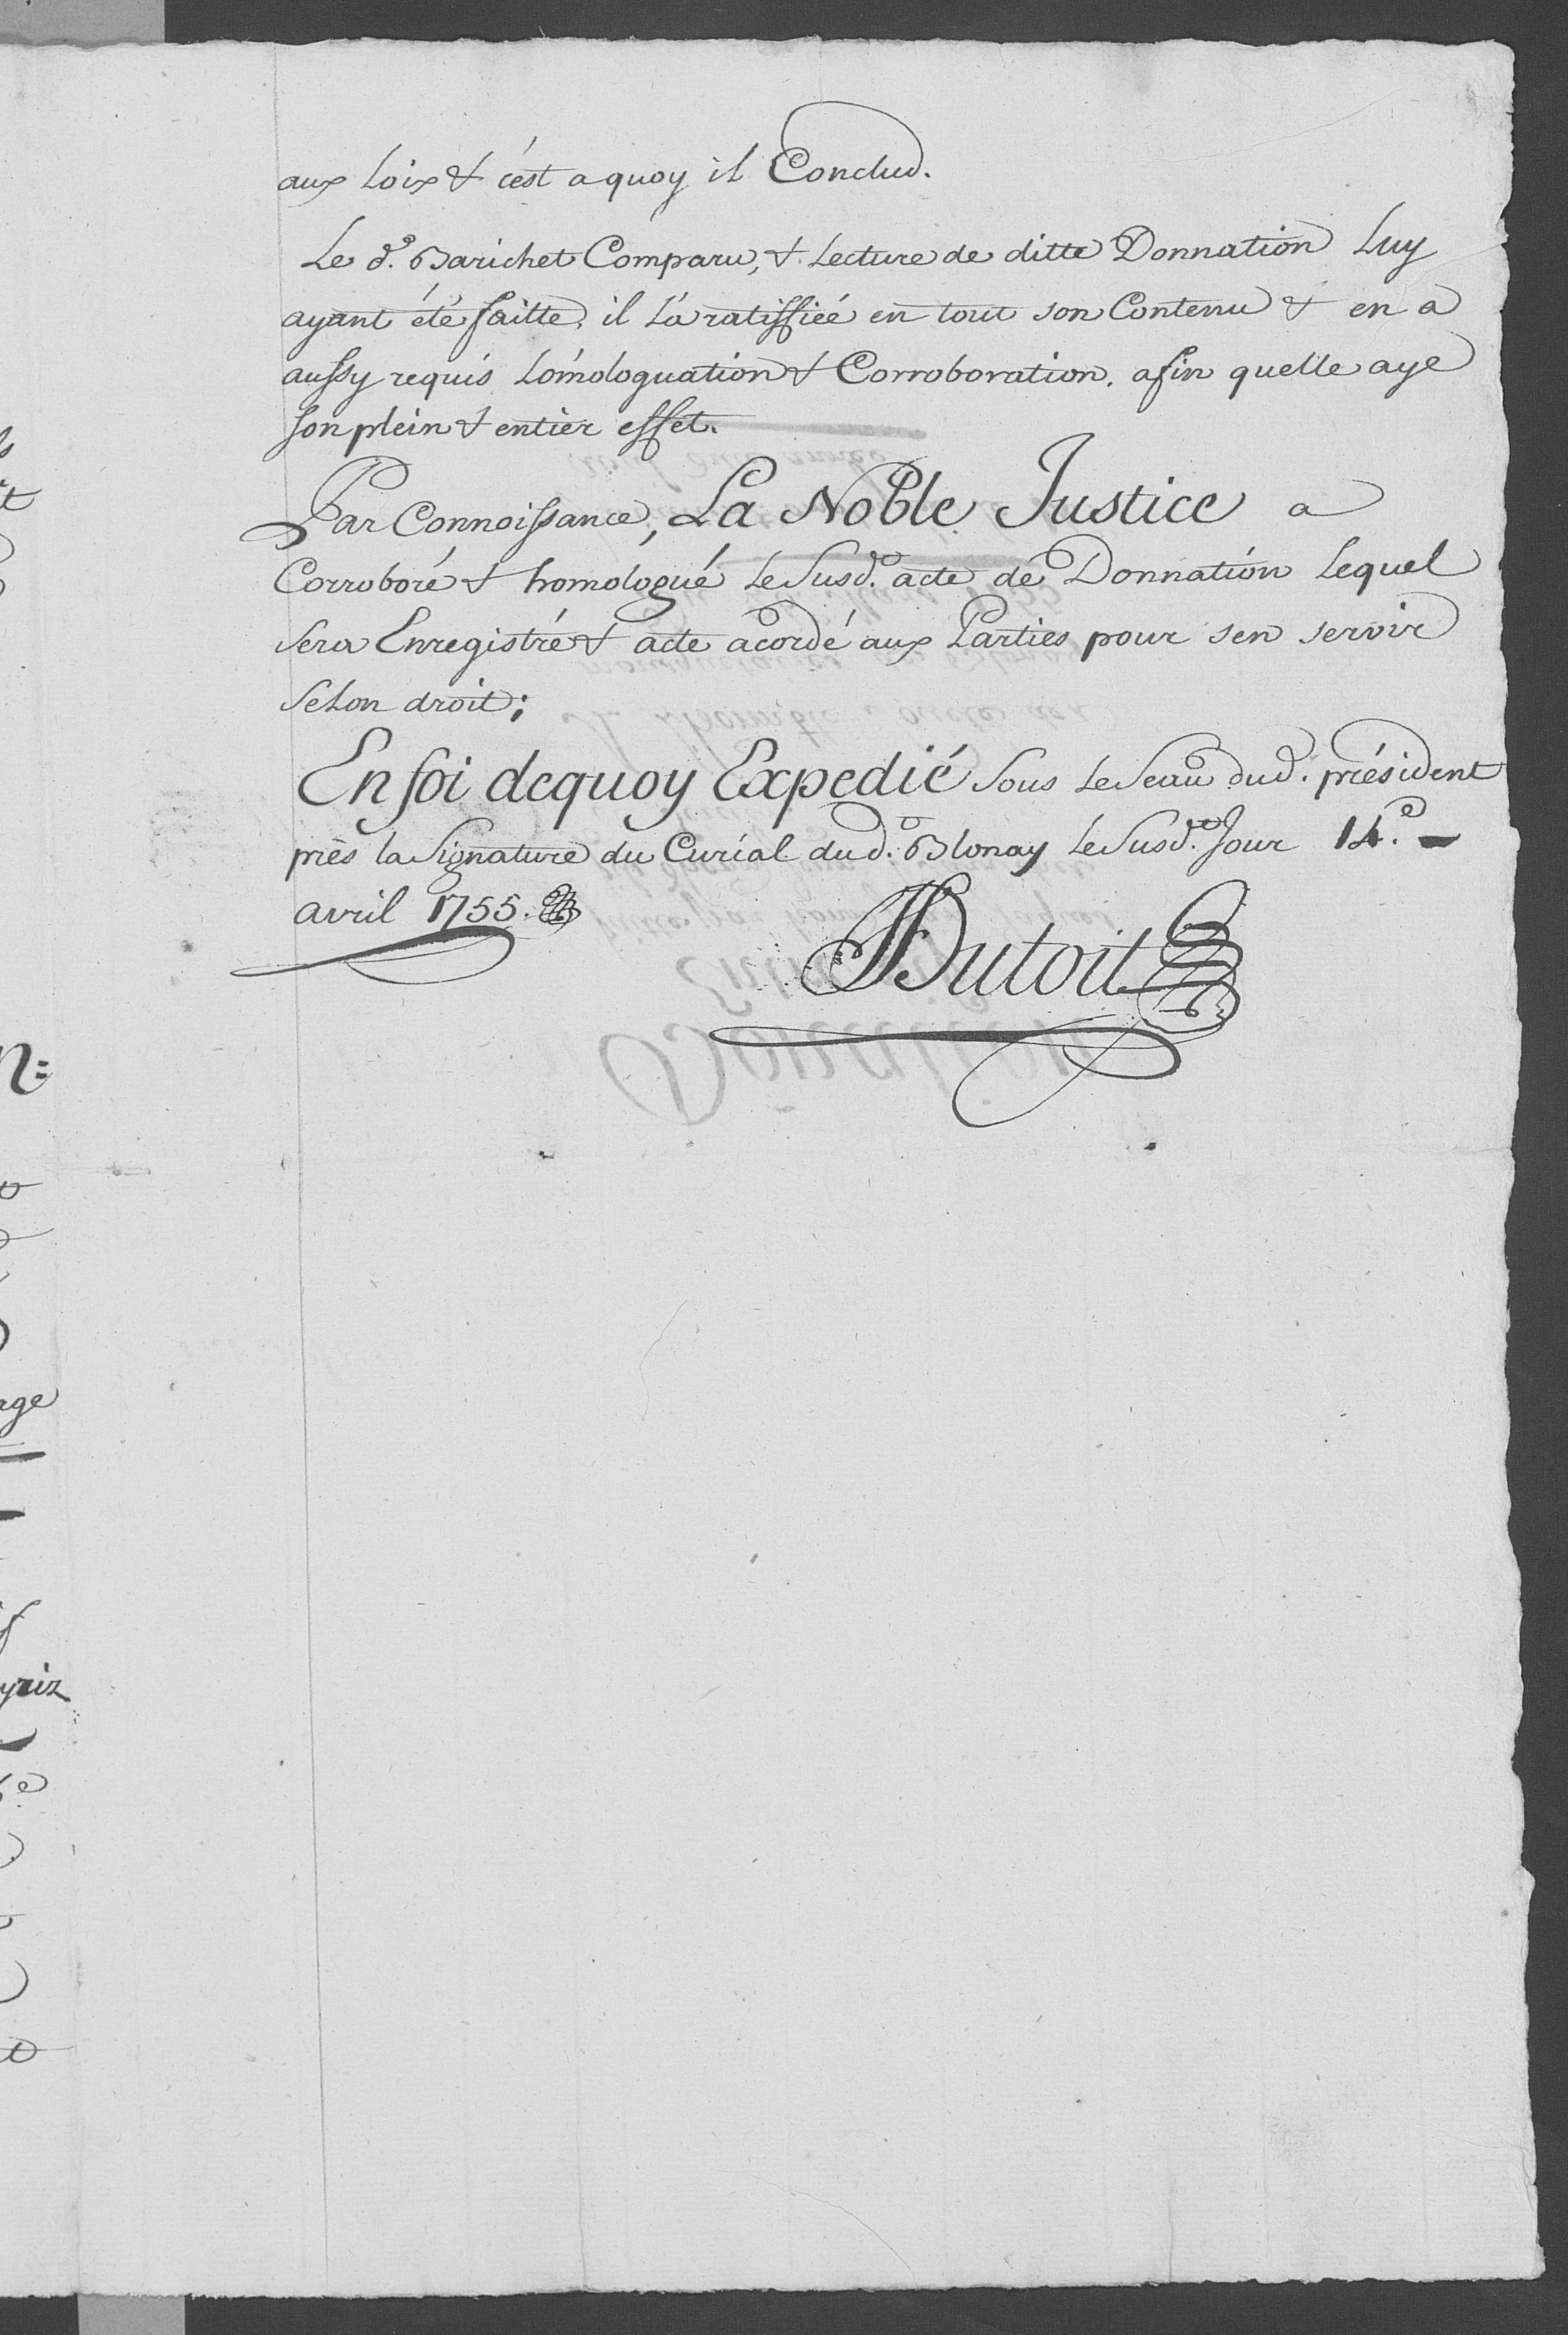 aux Loix & c'est a quoy il Conclud.
Le d.^e Barichet Comparu, & Lecture de ditte Donnation Luy
ayant été faitte, il L'a ratiffiéé en tout son Contenu & en a
aussy requis L'omologuation & Corroboration, afin quelle aye
son plein & entier effet.
Par Connoissance, La Noble Justice a
Corroboré & homologué Le Susd.^e acte de Donnation Lequel
sera Enregistré & acte acordé aux Parties pour sen servir
selon droit;
En foi dequoy Expedié sous Le Seau dud. président
près la Signature du Curial dud.^e Blonay Le Susd.^e Jour 14.^e
avril 1755.
Dutoit